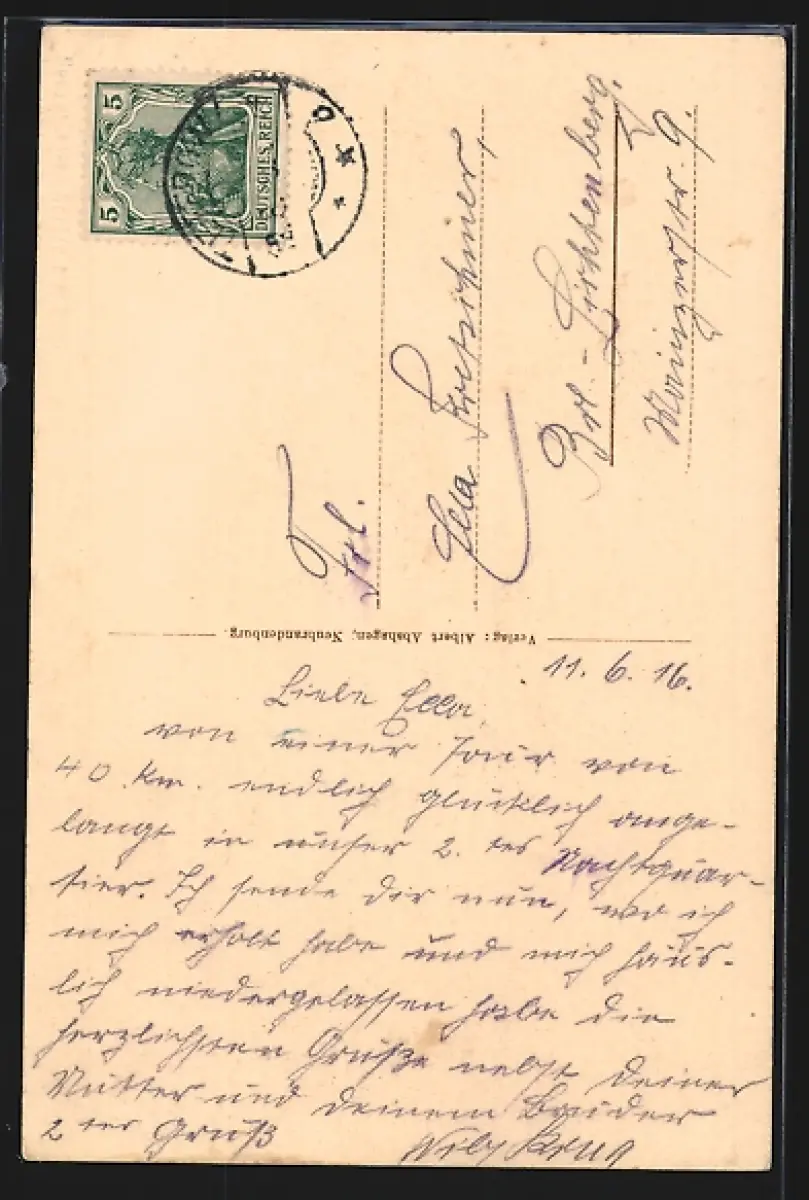 5 5
DEUTSCHES REICH
Frl.
Ella Kretschmer,
Brl.-Lichtenberg,
Mainzerstr. 9.
Verlag: Albert Abshagen, Neubrandenburg.
11. 6. 16.
Liebe Ella,
von einer Tour von
40 km. endlich glücklich ange-
langt in unser 2. tes Nachtquar-
tier. Ich sende dir nun, wo ich
mich erholt habe und mich häus-
lich niedergelassen habe die
herzlichsten Grüße nebst Deiner
Mutter und Deinem Bruder
2 ter Gruß Willy